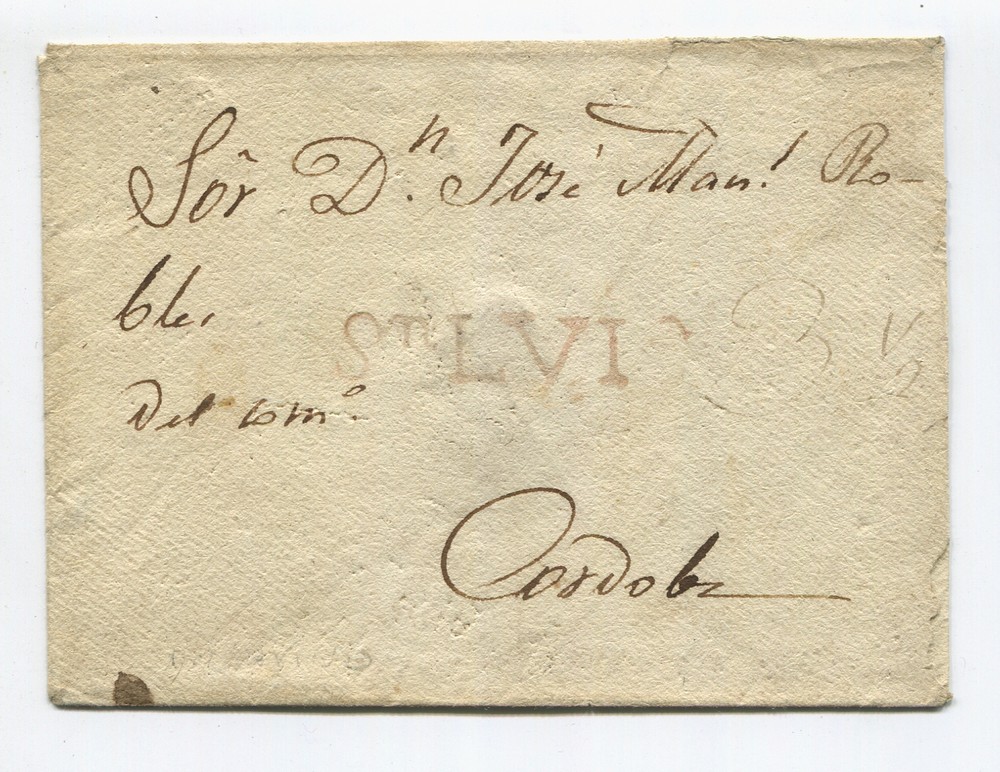 Sôr Dn. José Manl. Ro-
bles
Del comº.
Sn LVI
Cordoba